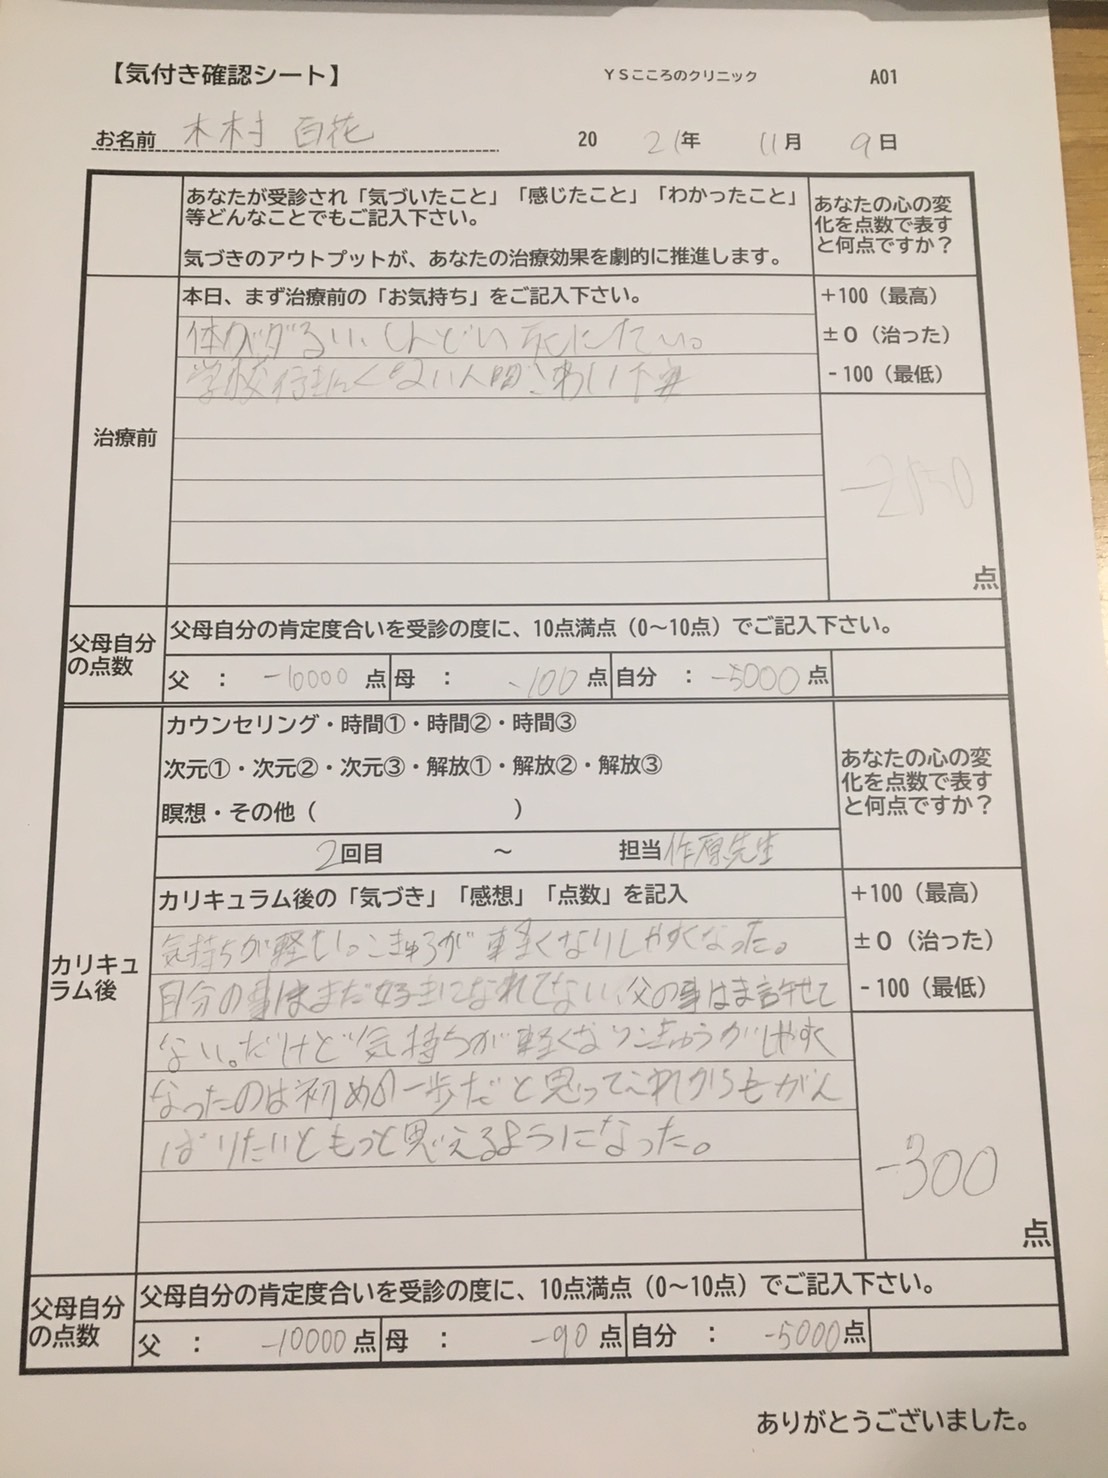 【気付き確認シート】 ＹＳこころのクリニック A01
お名前 木村 百花 20 21年 11月 9日
あなたが受診され「気づいたこと」「感じたこと」「わかったこと」
等どんなことでもご記入下さい。
気づきのアウトプットが、あなたの治療効果を劇的に推進します。
あなたの心の変
化を点数で表す
と何点ですか？
治療前
本日、まず治療前の「お気持ち」をご記入下さい。
体がダるい、しんどい 死にたい。
学校行きたくない人間こわい
+100（最高）
±0（治った）
-100（最低）
点
父母自分
の点数
父母自分の肯定度合いを受診の度に、10点満点（0〜10点）でご記入下さい。
父 ： -10000 点 母 ： -100 点 自分 ： -5000 点
カリキュ
ラム後
カウンセリング・時間①・時間②・時間③
次元①・次元②・次元③・解放①・解放②・解放③
瞑想・その他（ ）
2回目 〜 担当 作原先生
あなたの心の変
化を点数で表す
と何点ですか？
カリキュラム後の「気づき」「感想」「点数」を記入
気持ちが軽もしこきゅうが軽くなりしやすくなった。
自分の事はまだ好きになれてない、父の事はま許せて
ない。だけど気持ちが軽くなりこきゅうがしやすく
なったのは初めの一歩だと思ってこれからもがん
ばりたいともっと思えるようになった。
+100（最高）
±0（治った）
-100（最低）
-300
点
父母自分
の点数
父母自分の肯定度合いを受診の度に、10点満点（0〜10点）でご記入下さい。
父 ： -10000 点 母 ： -90 点 自分 ： -5000点
ありがとうございました。